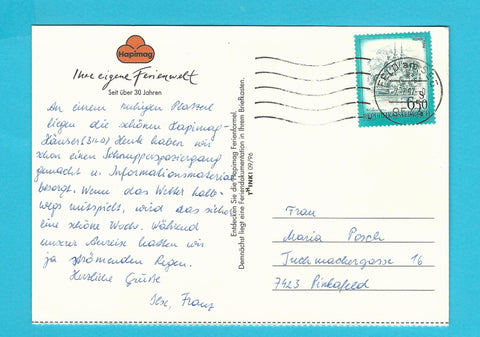 Hapimag
Ihre eigene Ferienwelt
Seit über 30 Jahren
An einem ruhigen Platzerl
liegen die schönen Hapimag-
Häuser! Heute haben wir
schon einen Schnupperspaziergang
gemacht u. Informationsmaterial
besorgt. Wenn das Wetter halb-
wegs mitspielt, wird das sicher
eine schöne Woche. Während
unserer Anreise hatten wir
ja strömenden Regen.
Herzliche Grüße
Ilse, Franz
Entdecken Sie die Hapimag Ferienformel.
Demnächst liegt eine Feriendokumentation in Ihrem Briefkasten.
INK 09/96
6.50
REPUBLIK ÖSTERREICH
FELD am SEE
Frau
Maria Posch
Tuchmachergasse 16
7423 Pinkafeld